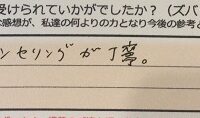 受けられていかがでしたか？（ズバ
な感想が、私達の何よりの力となり今後の参考と
ンセリングが丁寧。